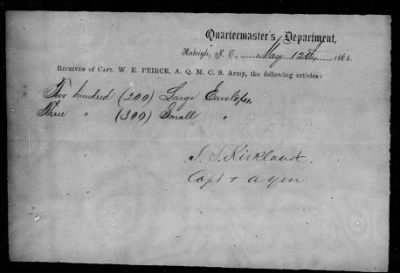 Quartermaster's Department,
Raleigh, N. C., May 12th 1863.
Received of Capt. W. E. PEIRCE, A. Q. M. C. S. Army, the following articles:
Two hundred (200) Large Envelopes
Three " (300) Small "
S. S. Kirkland.
Capt + aqm